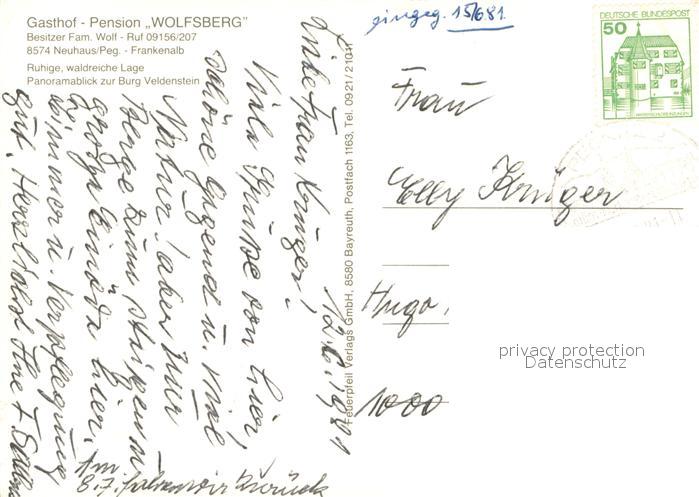 Gasthof - Pension „WOLFSBERG"
Besitzer Fam. Wolf - Ruf 09156/207
8574 Neuhaus/Peg. - Frankenalb
Ruhige, waldreiche Lage
Panoramablick zur Burg Veldenstein
eingeg. 15/6.81.
50 DEUTSCHE BUNDESPOST
WASSERSCHLOSS INZLINGEN
12.6.1981
Liebe Frau Krüger!
Viele Grüße von hier,
schöne Gegend u. viel
Natur! aber nur
Berge zum steigen u.
große Einöde hier.
Zimmer u. Verpflegung
gut. Herzlichst Ihre
Am
8.7. fahren wir zurück
Feuerpfeil Verlags GmbH, 8580 Bayreuth, Postfach 1163, Tel. 0921/21041
Frau
Elly Krüger
Hugo
1000
privacy protection
Datenschutz